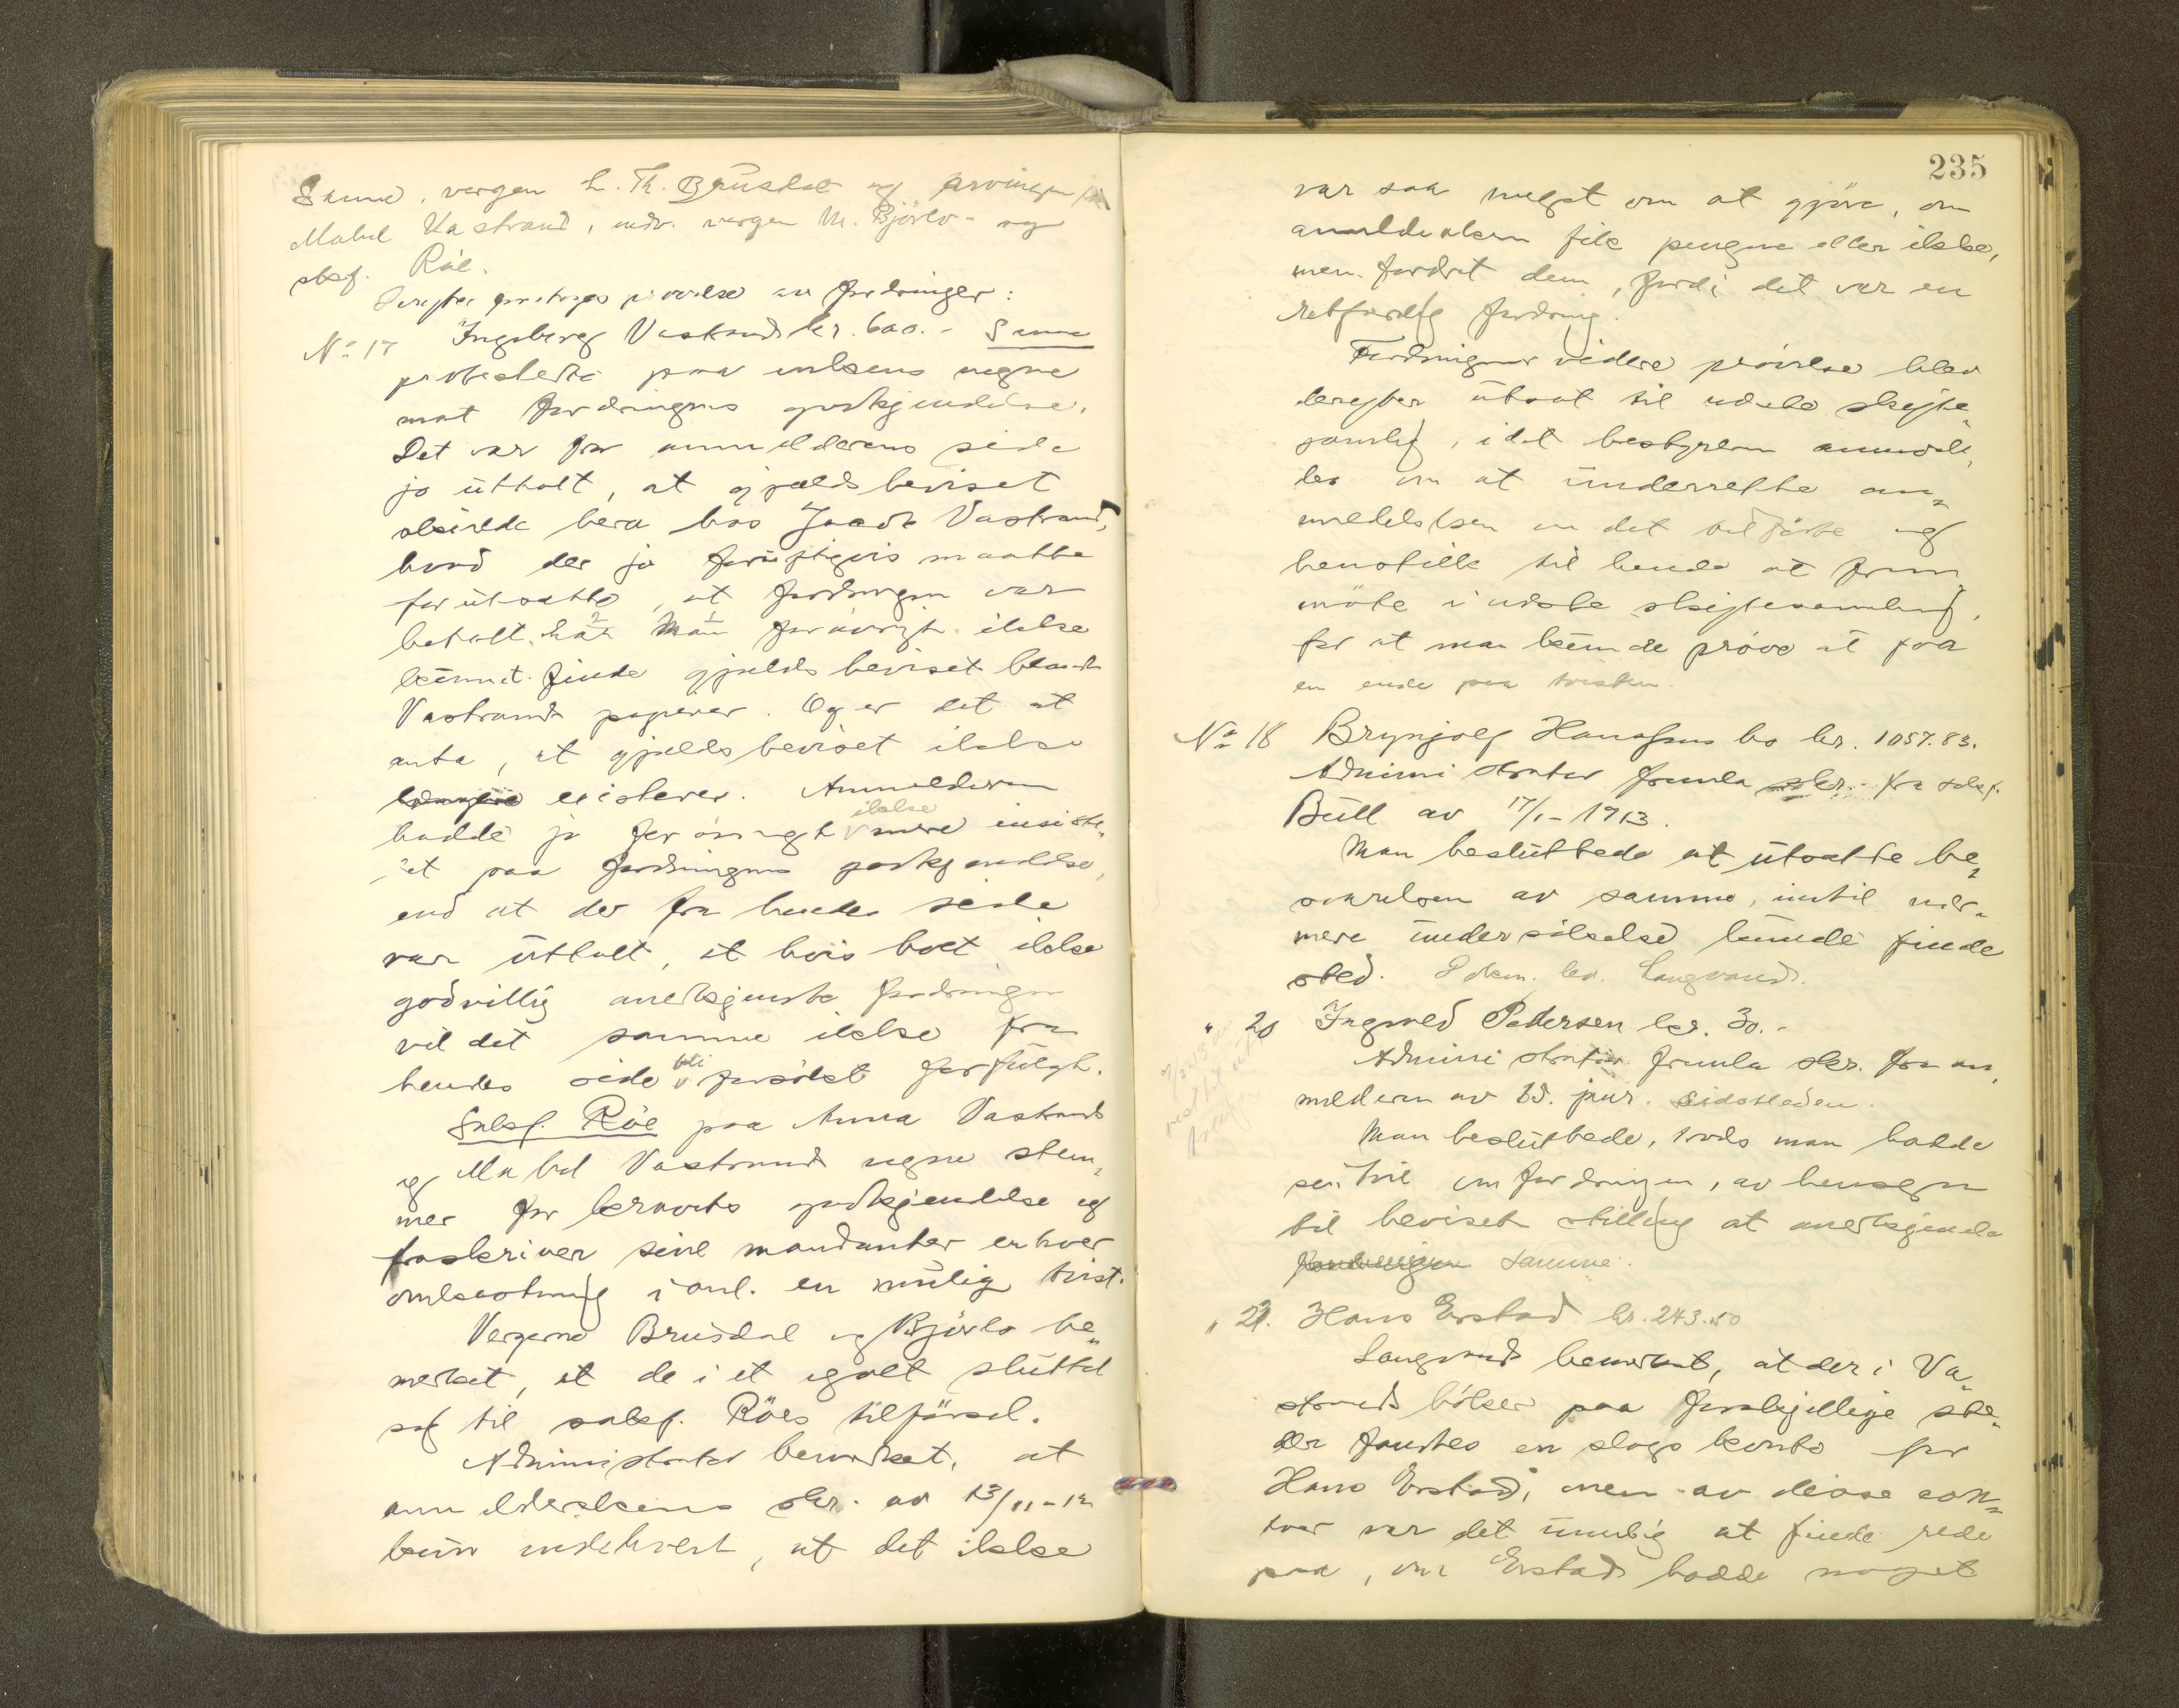 Sunne, vergen L. Th. Brusdal og arvingen frk.
Mabel Vastrand, vergen M. Björlo og
Röe.
Derefter foretoges prövelse av fordringer:
No 17 Ingeborg Vastrand kr. 600.- Sunne
protesterte paa enkens vegne
mot fordringens godkjendelse.
Det var fra anmelderens side
jo üttalt, at gjeldsbeviset
skülde bero hos Jacob Vastrand,
hvad der jo fornüftigvis maatte
forütsætte, at fordringen var
betalt. har Man forövrigt ikke
künnet finde gjeldsbeviset blandt
Vastrands papirer. Og er det at
anta, at gjeldsbeviset ikke
existerer. Anmelderen
hadde jo forövrigt ikke mere insiste-
ret paa fordringens godkjendelse,
end at der fra hendes side
var üttalt, at hvis boet ikke
godvillig anerkjendte fordringen
vil det samme ikke fra
hendes side bli forsökt forfülgt.
Saksf. Röe paa Anna Vastrands
og Mabel Vastrands vegne stem-
mer for kravets godkjendelse og
fraskriver sine mandanter enhver
omkostning i anl. en mülig tvist.
Vergerne Brusdal og Björlo be-
merket, at de i et og alt sluttet
sig til saksf. Röes tilförsel.
Administrator bemerket, at
anmelderskens skr. av 13/11-12
kün indeholdt, at det ikke
235
var saa meget om at gjöre, om
anmeldersken fik pengene eller ikke,
men fordret dem, fordi det var en
retfærdig fordring.
Fordringens videre prövelse blev
derefter ütsat til næste skifte-
samling, idet bestyreren anmod-
des om at ünderrette an-
meldersken om det tilförte og
henstille til hende at frem-
möte i næste skiftesamling,
for at man künde pröve at faa
en ende paa tvisten.
No 18 Brynjolf Hansens bo kr. 1057.83.
Administrator fremla skr. fra saksf.
Büll av 17/1-1913.
Man besluttede at ütsætte be-
svarelsen av samme, intil nær-
mere ündersökelse künde finde
sted. Langvand.
" 20 Ingvald Pedersen kr. 30.-
Administrator fremla skr. fra an-
melderen av ds. sidstleden.
Man besluttede, trods man hadde
sin tvil om fordringen, av hensyn
til bevisets stilling at anerkjende
fordringen samme.
" 21. Hans Erstad kr. 243.50
Langvand bemerket, at der i Va-
strands böker paa forskjellige ste-
der fandtes en slags konto for
Hans Erstad, men av disse con-
toer var det ümulig at finde rede
paa, om Erstad hadde noget